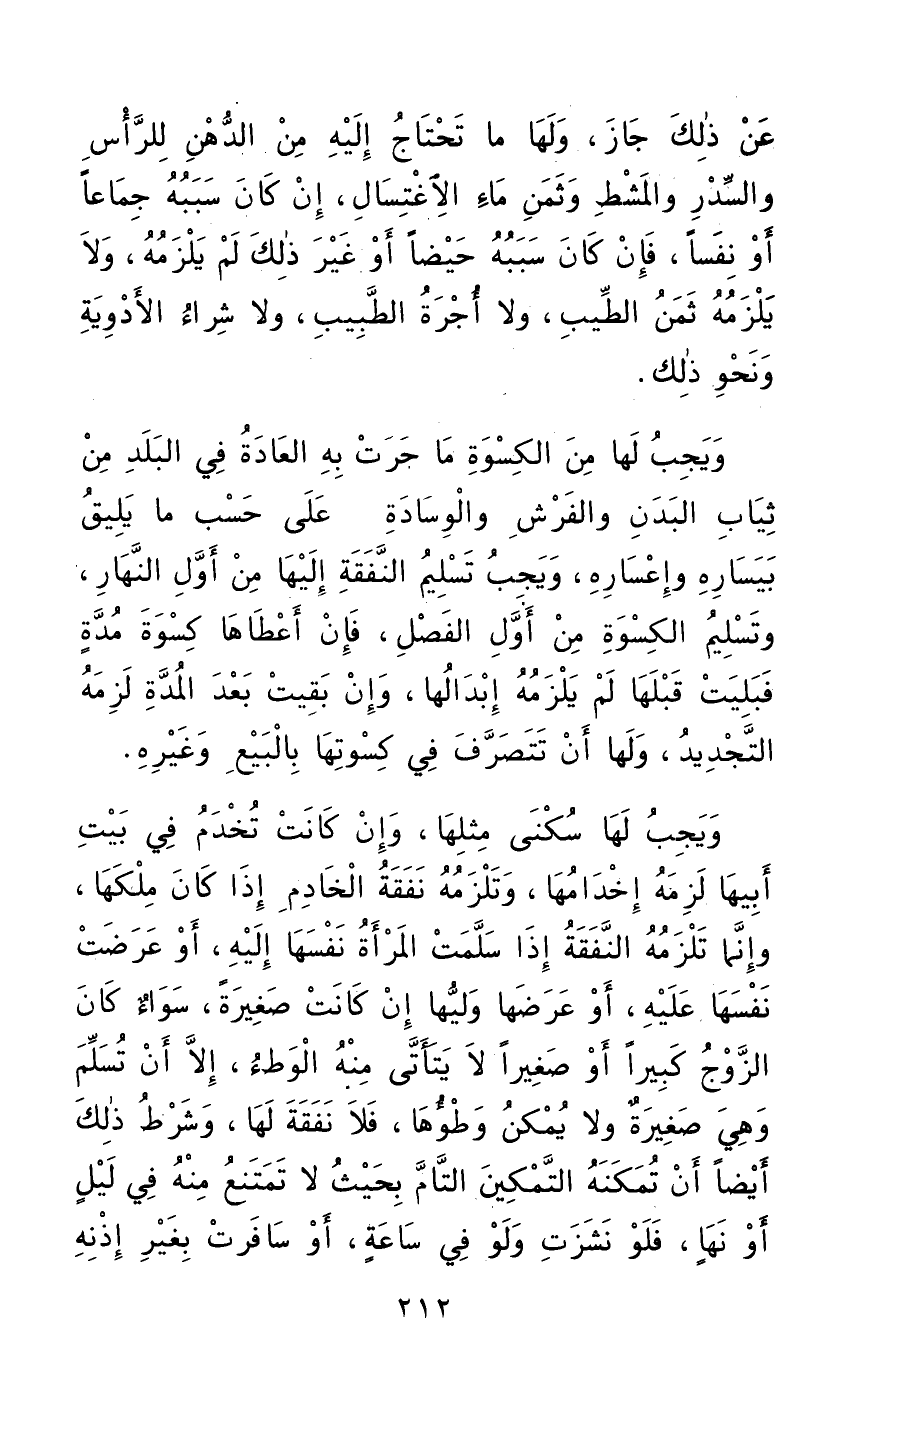 عَنْ ذٰلِكَ جَازَ، وَلَهَا ما تَحْتَاجُ إِلَيْهِ مِنْ الدُّهْنِ لِلرَّأْسِ
والسِّدْرِ والمَشْطِ وَثَمَنِ مَاءِ الِاغْتِسَالِ، إِنْ كَانَ سَبَبُهُ جِمَاعاً
أَوْ نِفَساً، فَإِنْ كَانَ سَبَبُهُ حَيْضاً أَوْ غَيْرَ ذٰلِكَ لَمْ يَلْزَمُهُ، وَلَا
يَلْزَمُهُ ثَمَنُ الطِّيبِ، ولا أُجْرَةُ الطَّبِيبِ، ولا شِراءُ الأَدْوِيَةِ
وَنَحْوِ ذٰلِك.
وَيَجِبُ لَها مِنَ الكِسْوَةِ مَا جَرَتْ بِهِ العَادَةُ فِي البَلَدِ مِنْ
ثِيَابِ البَدَنِ والفَرْشِ والْوِسَادَةِ عَلَى حَسْبِ ما يَلِيقُ
بَيَسَارِهِ وإِعْسَارِهِ، وَيَجِبُ تَسْلِيمُ النَّفَقَةِ إِلَيْهَا مِنْ أَوَّلِ النَّهَارِ،
وتَسْلِيمُ الكِسْوَةِ مِنْ أَوَّلِ الفَصْلِ، فَإِنْ أَعْطَاهَا كِسْوَةَ مُدَّةٍ
فَبَلِيَتْ قَبْلَهَا لَمْ يَلْزَمُهُ إِبْدَالُها، وَإِنْ بَقِيتْ بَعْدَ المُدَّةِ لَزِمَهُ
التَّجْدِيدُ، وَلَها أَنْ تَتَصَرَّفَ فِي كِسْوتِهَا بِالْبَيْعِ وَغَيْرِهِ.
وَيَجِبُ لَهَا سُكْنَى مِثلِهَا، وَإِنْ كَانَتْ تُخْدَمُ فِي بَيْتِ
أَبِيهَا لَزِمَهُ إِخْدَامُهَا، وَتَلْزَمُهُ نَفَقَةُ الْخَادِمِ إِذَا كَانَ مِلْكَهَا،
وإِنَّما تَلْزَمُهُ النَّفَقَةُ إِذَا سَلَّمَتْ المَرْأَةُ نَفْسَهَا إِلَيْهِ، أَوْ عَرَضَتْ
نَفْسَهَا عَلَيْهِ، أَوْ عَرَضَها وَليُّها إِنْ كَانَتْ صَغِيرَةً، سَوَاءٌ كَانَ
الزَّوْجُ كَبِيراً أَوْ صَغِيراً لَا يَتَأَتَّى مِنْهُ الْوَطءُ، إِلاَّ أَنْ تُسَلِّمَ
وَهِيَ صَغِيرَةٌ ولا يُمْكنُ وَطْؤُهَا، فَلَا نَفَقَةَ لَهَا، وَشَرْطُ ذٰلكَ
أَيْضاً أَنْ تُمَكنَهُ التَّمْكِينَ التَّامَّ بِحَيْثُ لا تَمتَنعُ مِنْهُ فِي لَيْلٍ
أَوْ نَهَاٍ، فَلَوْ نَشَزَتِ وَلَوْ فِي سَاعَةٍ، أَوْ سَافَرتْ بِغَيْرِ إِذْنِهِ
٢١٢